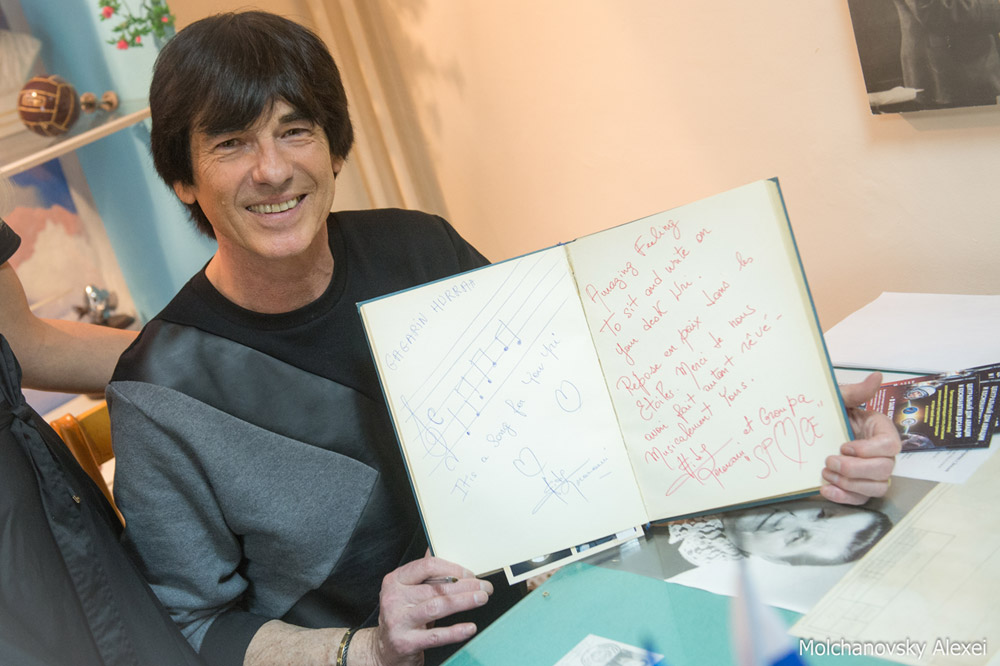 GAGARIN HURRAH
It is a Song for You Yuri
Amazing Feeling
To sit and write on
your desk Uri
Repose en paix dans les
Etoiles. Merci de nous
avoir fait autant rêvé-
Musicalement Yours.
et Groupa
SPACE
Molchanovsky Alexei